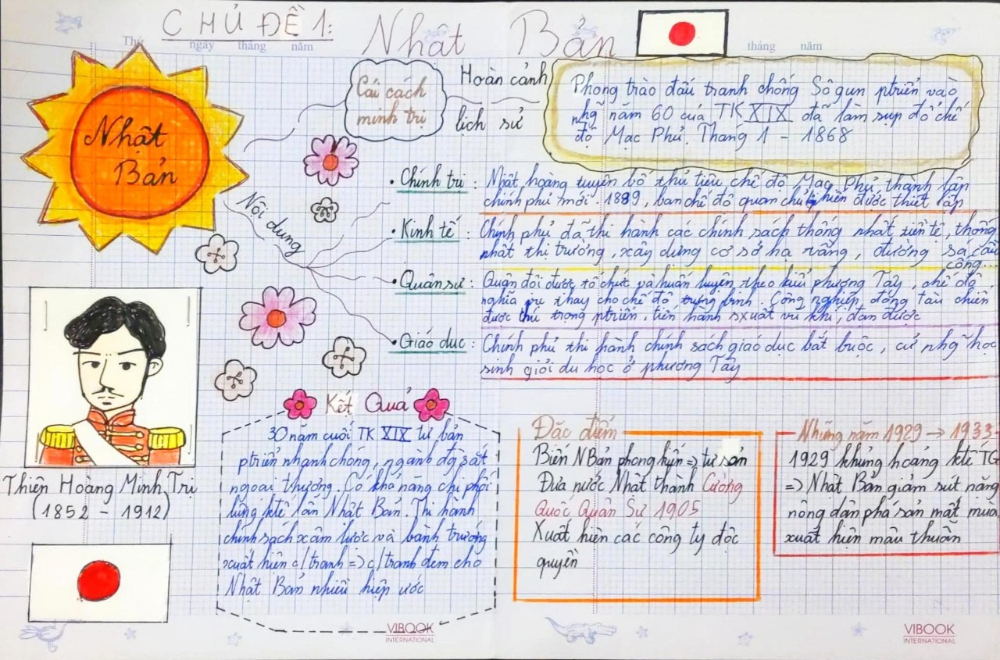 CHỦ ĐỀ 1:
Nhật Bản
Thứ ngày tháng năm
tháng năm
Nhật
Bản
Cải cách
minh trị
Hoàn cảnh
lịch sử
Phong trào đấu tranh chống Sôgun ptriển vào
nhg năm 60 của TK XIX đã làm sụp đổ chế
độ Mạc Phủ. Thang 1 - 1868
Nội dung
• Chính trị : Nhật hoàng tuyên bố thủ tiêu chế độ Mạc Phủ, thành lập
chính phủ mới. 1889, ban chế độ quan chủ lập hiến được thiết lập
• Kinh tế : Chính phủ đã thi hành các chính sách thống nhất tiền tệ, thống
nhất thị trường, xây dựng cơ sở hạ tầng, đường sá, cầu
cống...
• Quân sự : Quân đội được tổ chức và huấn luyện theo kiểu phương Tây, chế độ
nghĩa vụ thay cho chế độ trưng binh. Công nghiệp đóng tàu chiến
được chú trọng ptriển, tiến hành sxuất vũ khí, đạn dược
• Giáo dục : Chính phủ thi hành chính sách giáo dục bắt buộc, cử nhg học
sinh giỏi du học ở phương Tây
Thiên Hoàng Minh Trị
(1852 - 1912)
Kết Quả
30 năm cuối TK XIX tư bản
ptriển nhanh chóng, ngành đg sắt
ngoại thương. Có khả năng chi phối
lũng ktế lẫn Nhật Bản. Thi hành
chính sách xâm lược và bành trướng
xuất hiện c/tranh => c/tranh đem cho
Nhật Bản nhiều hiệp ước
Đặc điểm
Biến NBản phong kiến => tư sản
Đưa nước Nhật thành Cường
Quốc Quân Sự 1905
Xuất hiện các công ty độc
quyền
Những năm 1929 → 1933
1929 khủng hoảng ktế TG
=> Nhật Bản giảm sút nặng
nông dân phá sản mất mùa
xuất hiện mâu thuẫn
VIBOOK
INTERNATIONAL
VIBOOK
INTERNATIONAL